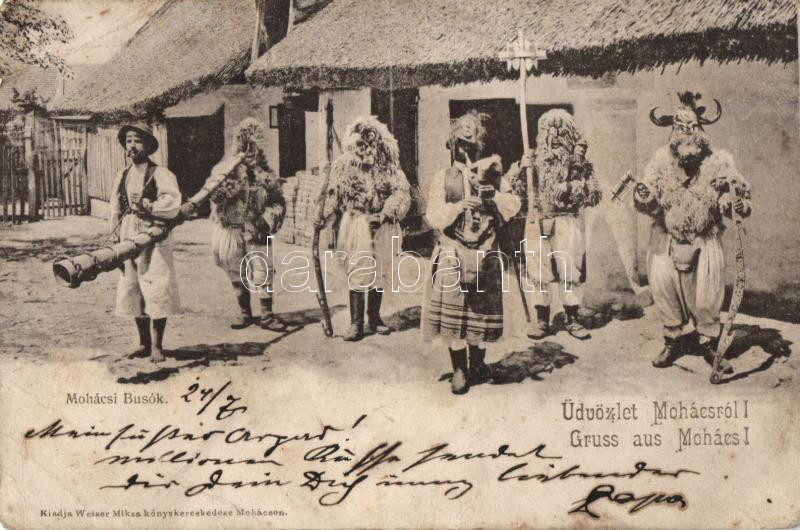 darabanth.com
Mohácsi Busók.
24/7
Üdvözlet Mohácsról!
Gruss aus Mohács!
Mein süsses Arpad!
millionen Küsse sendet
dir Dein Dich innig liebender
Papa
Kiadja Weiser Miksa könyvkereskedése Mohácson.